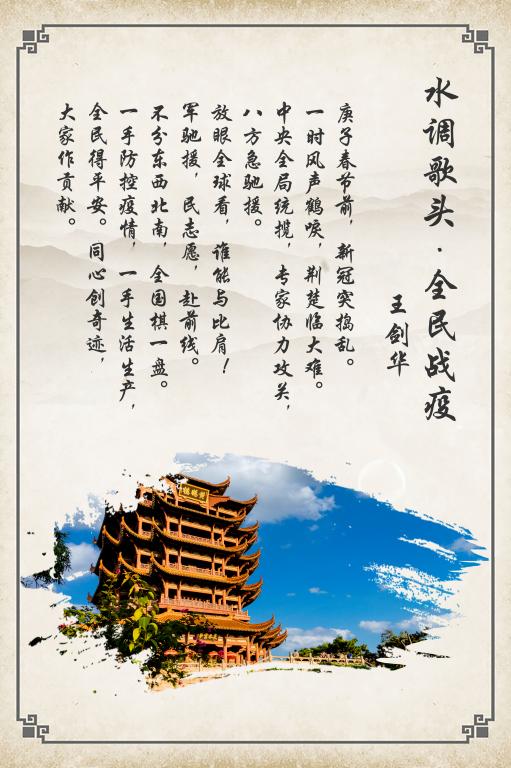 水调歌头·全民战疫
王剑华
庚子春节前，新冠突捣乱。
一时风声鹤唳，荆楚临大难。
中央全局统揽，专家协力攻关，
八方急驰援。
放眼全球看，谁能与比肩！
军驰援，民志愿，赴前线。
不分东西北南，全国棋一盘。
一手防控疫情，一手生活生产，
全民得平安。同心创奇迹，
大家作贡献。